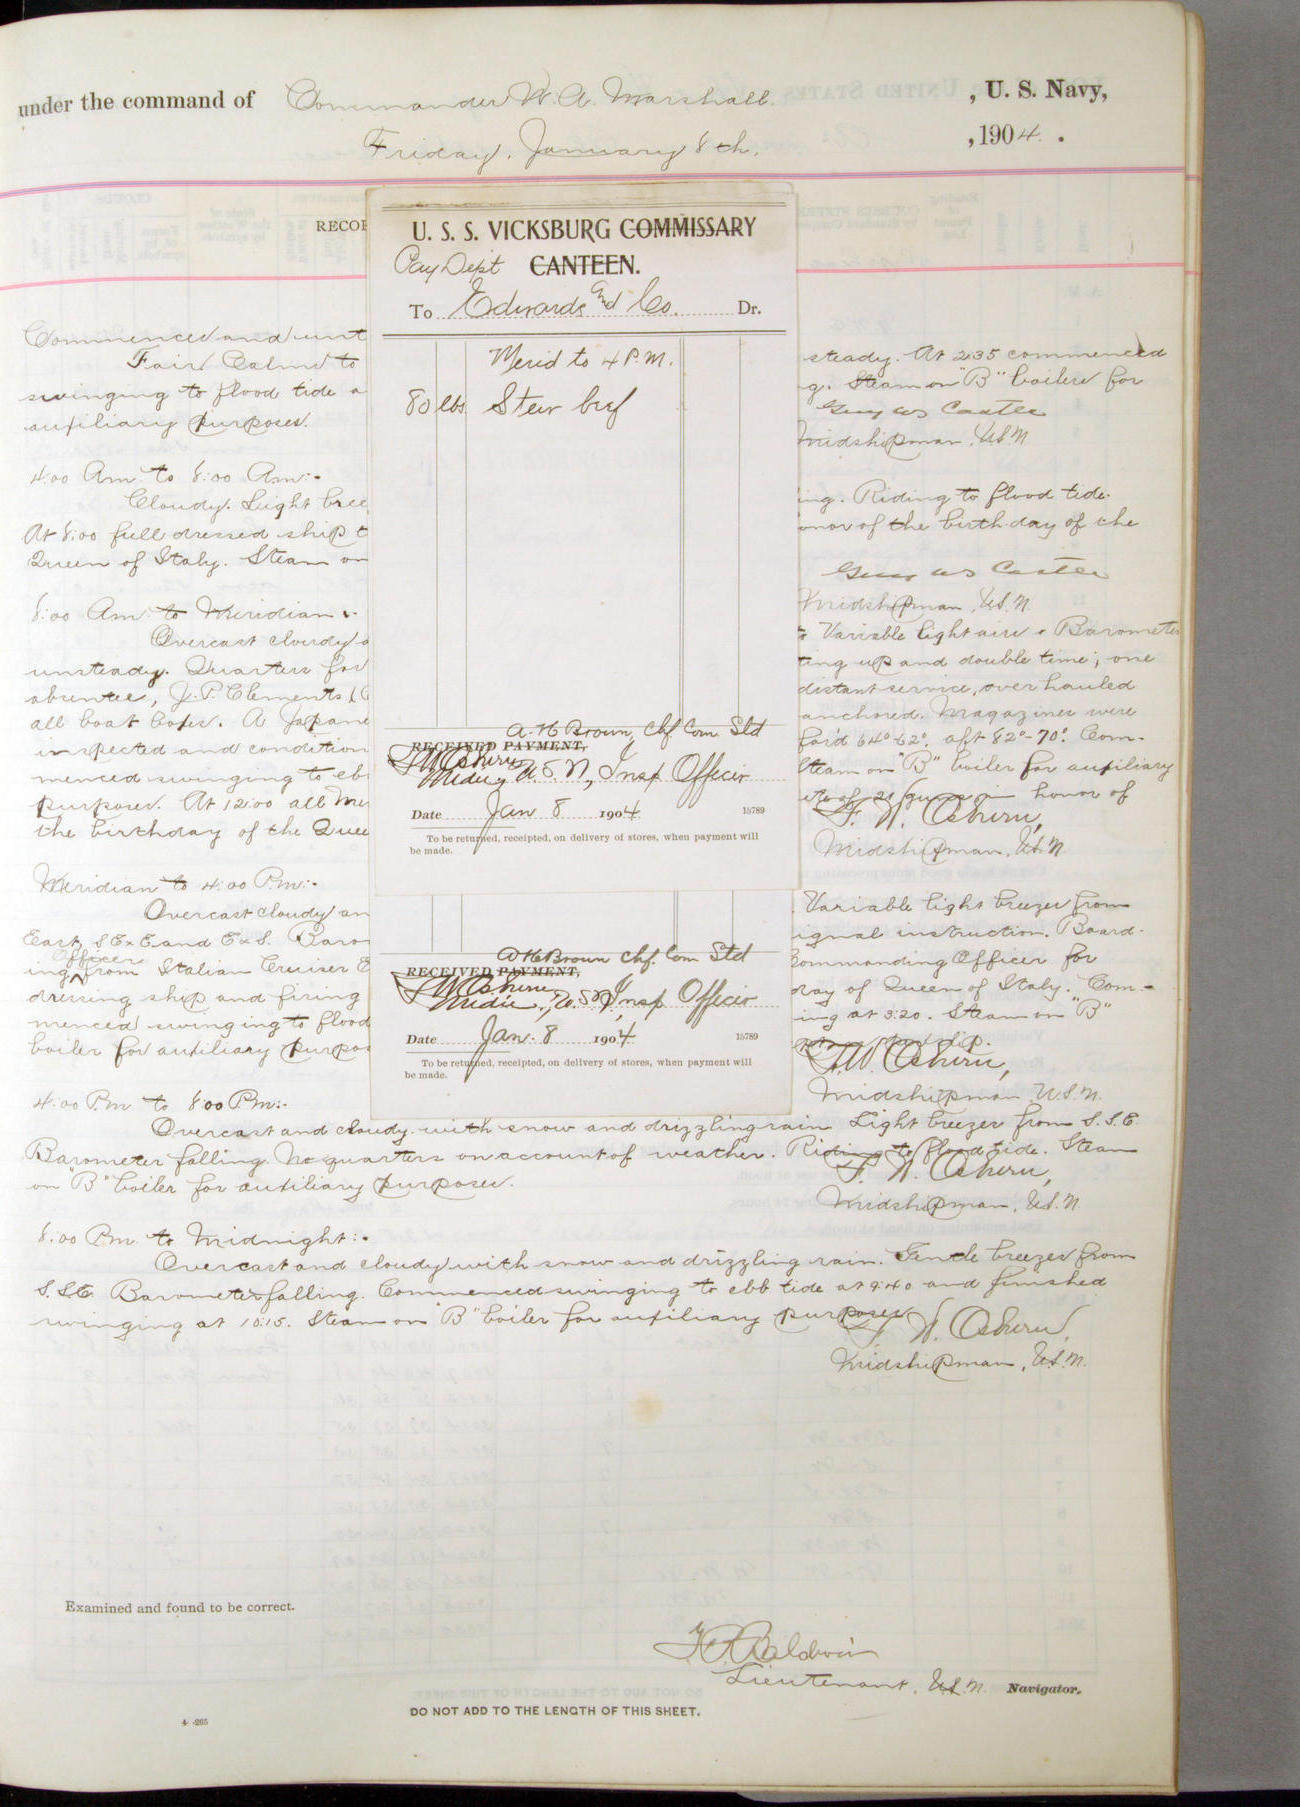 under the command of Commander W. A. Marshall , U. S. Navy,
Friday, January 8th. , 1904.
RECOR
Commenced and unt
Fair. Calm to
swinging to flood tide a
auxiliary purposes.
4:00 Am. to 8:00 Am:-
Cloudy. Light bree
At 8:00 full dressed ship t
Queen of Italy. Steam on
8:00 Am. to Meridian:-
Overcast cloudy a
unsteady. Quarters for
absentee, J. P. Clements (
all boat boxes. A Japane
inspected and condition
menced swinging to eb
purposes. At 12:00 all
the birthday of the Quee
Meridian to 4:00 P.m:-
Overcast cloudy an
East, SExE and ExS. Baro
Officer
ing from Italian Cruiser E
dressing ship and firing
menced swinging to flood
boiler for auxiliary purpos
U. S. S. VICKSBURG COMMISSARY
Pay Dept CANTEEN.
To Edwards and Co. Dr.
Merid to 4 P.M.
80 lbs Stew beef
A. H. Brown, Chf Com Std
RECEIVED PAYMENT,
F. W. Osburn
Midn, U. S. N, Insp Officer
Date Jan 8 1904 15789
To be returned, receipted, on delivery of stores, when payment will
be made.
A H Brown Chf. Com Std
RECEIVED PAYMENT,
F. W. Osburn
Midn., U. S. N, Insp Officer
Date Jan. 8 1904 15789
To be returned, receipted, on delivery of stores, when payment will
be made.
steady. At 2:35 commenced
g. Steam on "B" boiler for
Guy W S Castle
Midshipman, U.S.N
ing. Riding to flood tide.
onor of the birthday of the
Guy W S Castle
Midshipman, U.S.N.
Variable light airs. Barometer
ting up and double time; one
distant service, overhauled
anchored. Magazines were
for'd 64°-62°. aft 82°-70°. Com-
Steam on "B" boiler for auxiliary
ute of 21 guns in honor of
F. W. Osburn,
Midshipman, U.S.N.
Variable light breezes from
ignal instruction. Board-
Commanding Officer for
day of Queen of Italy. Com-
ing at 3:20. Steam on "B"
F. W. Osburn,
Midshipman, U.S.N.
4:00 P.m. to 8:00 P.m:-
Overcast and cloudy with snow and drizzling rain. Light breezes from S.S.E.
Barometer falling. No quarters on account of weather. Riding to flood tide. Steam
on "B" boiler for auxiliary purposes.
F. W. Osburn,
Midshipman, U.S.N.
8:00 P.m. to Midnight:-
Overcast and cloudy with snow and drizzling rain. Gentle breezes from
S.S.E. Barometer falling. Commenced swinging to ebb tide at 9:40 and finished
swinging at 10:15. Steam on "B" boiler for auxiliary purposes
F. W. Osburn,
Midshipman, U.S.N.
Examined and found to be correct.
Baldwin
Lieutenant, U.S.N. Navigator.
DO NOT ADD TO THE LENGTH OF THIS SHEET.